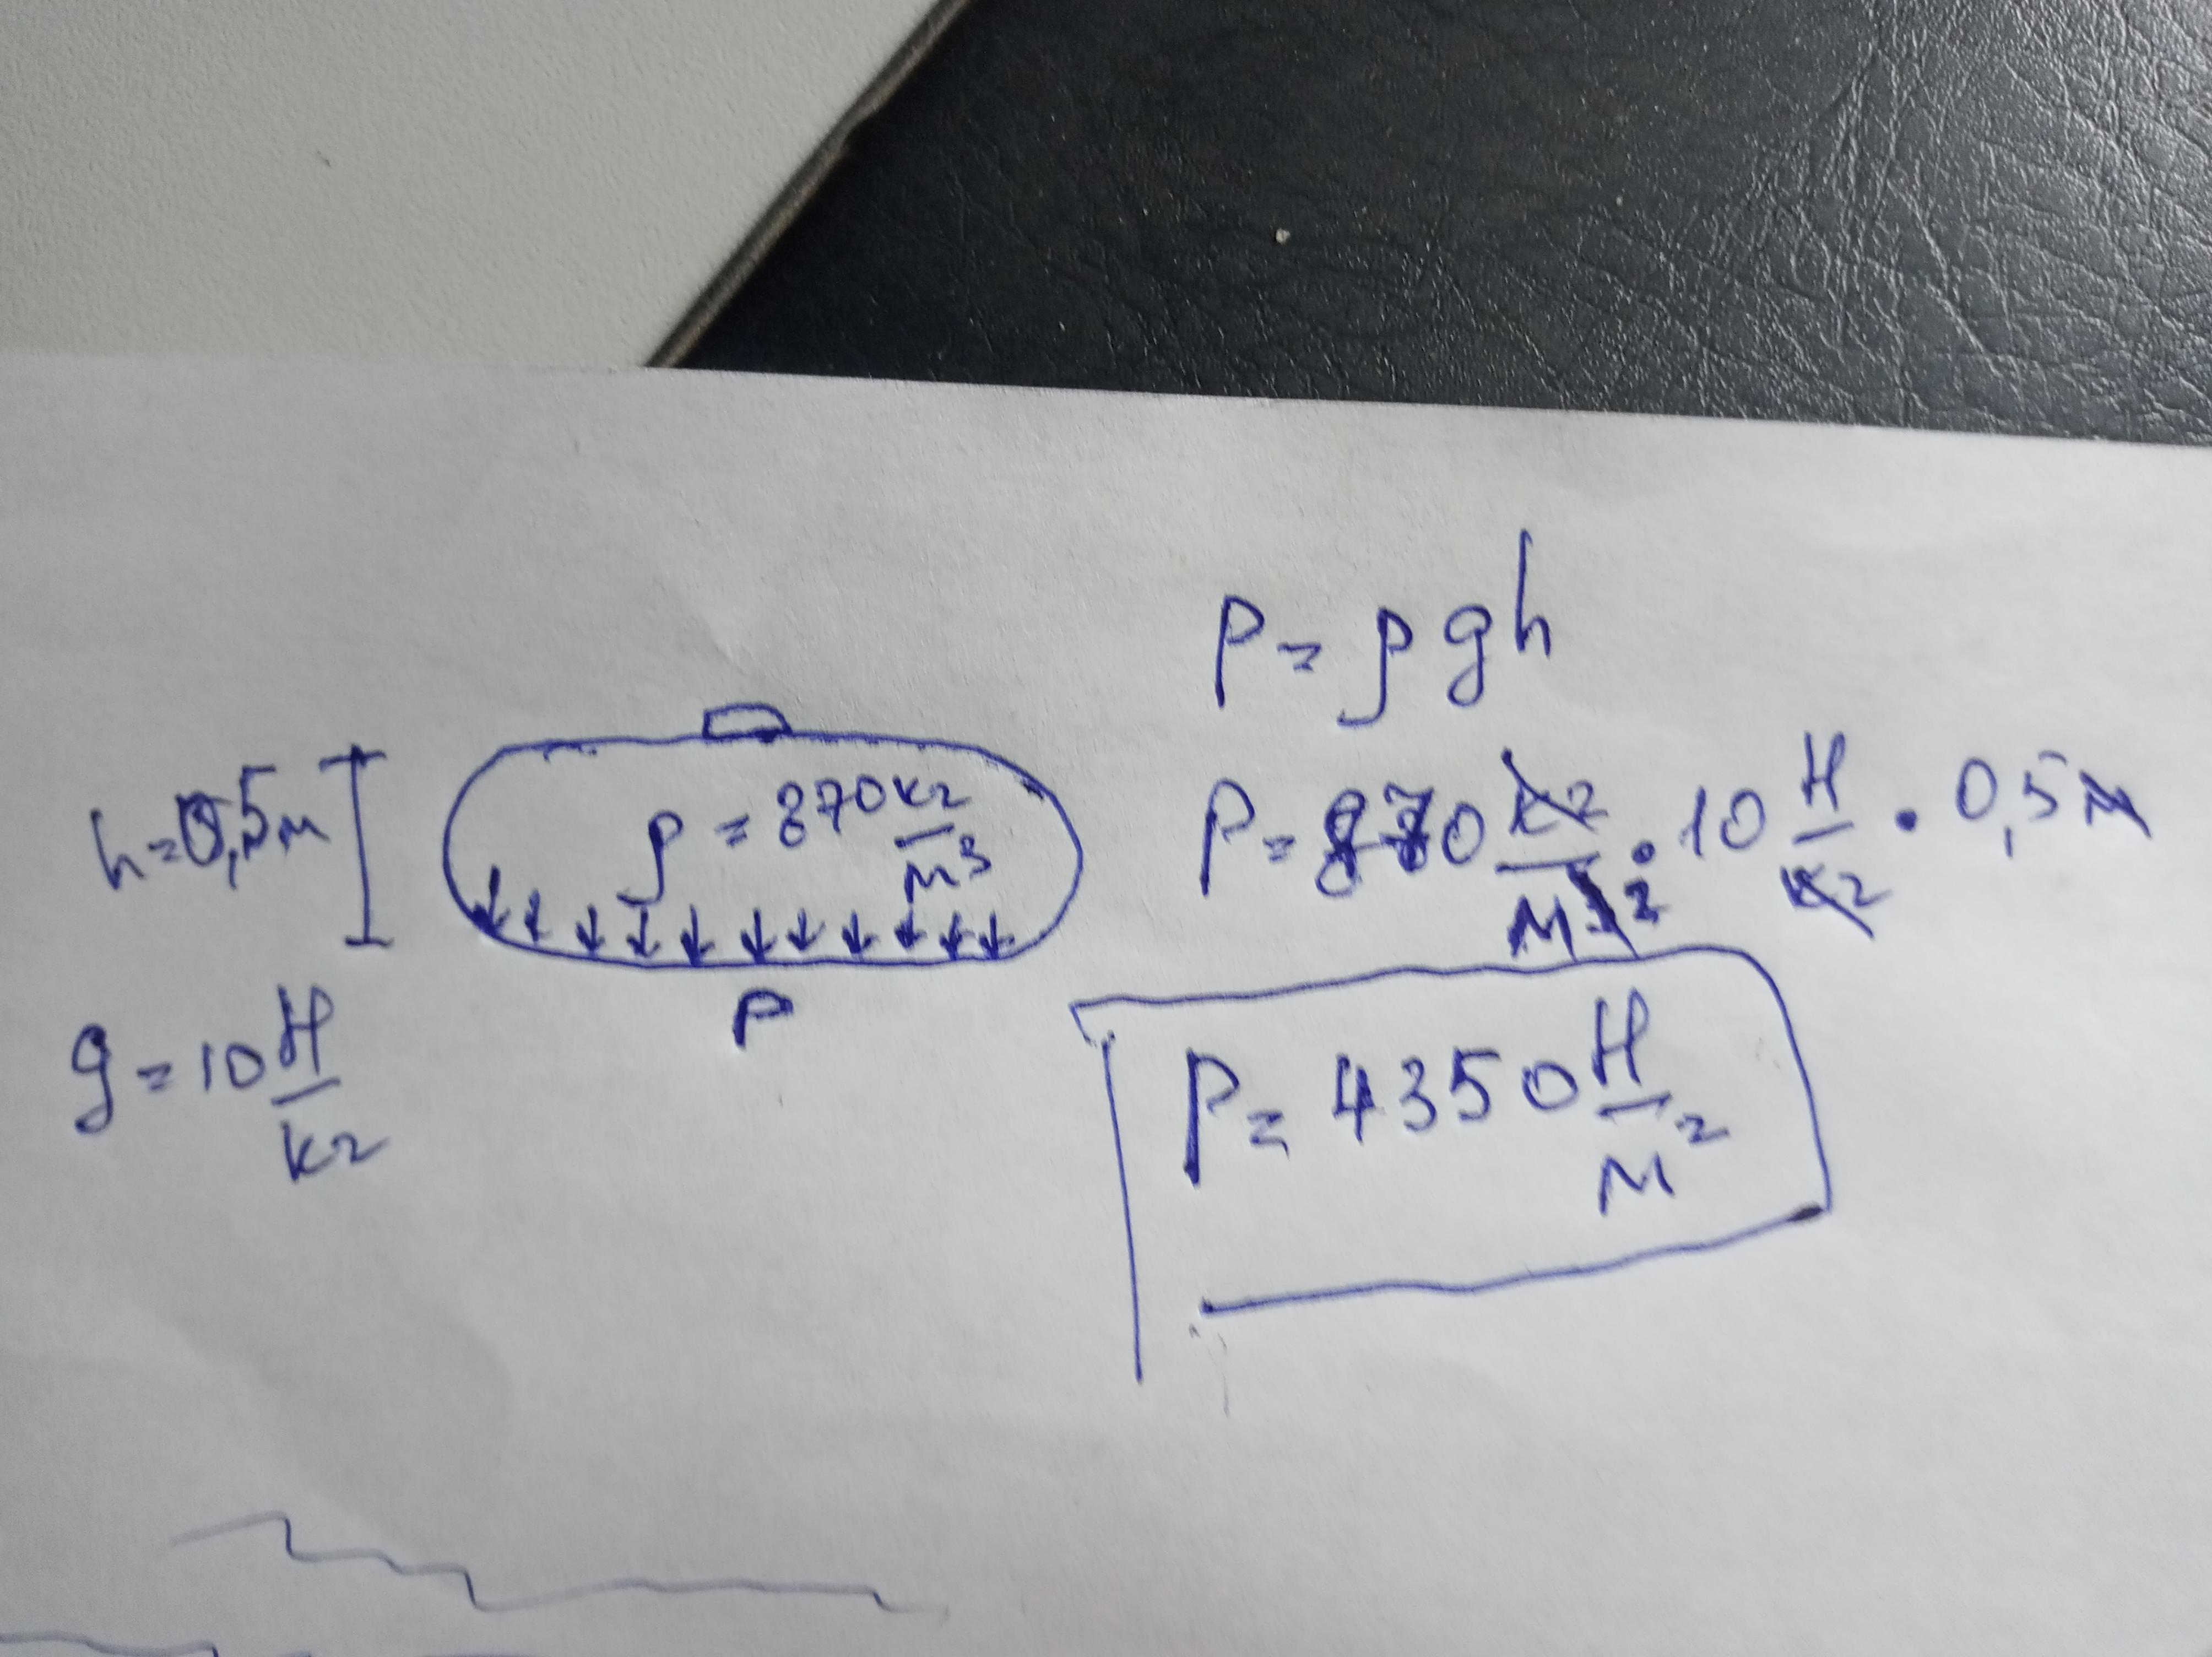 h=0,5м
ρ = 870 кг/м³
P
g=10 Н/кг
P=ρgh
P=870 кг/м² · 10 Н/кг · 0,5м
P=4350 Н/м²